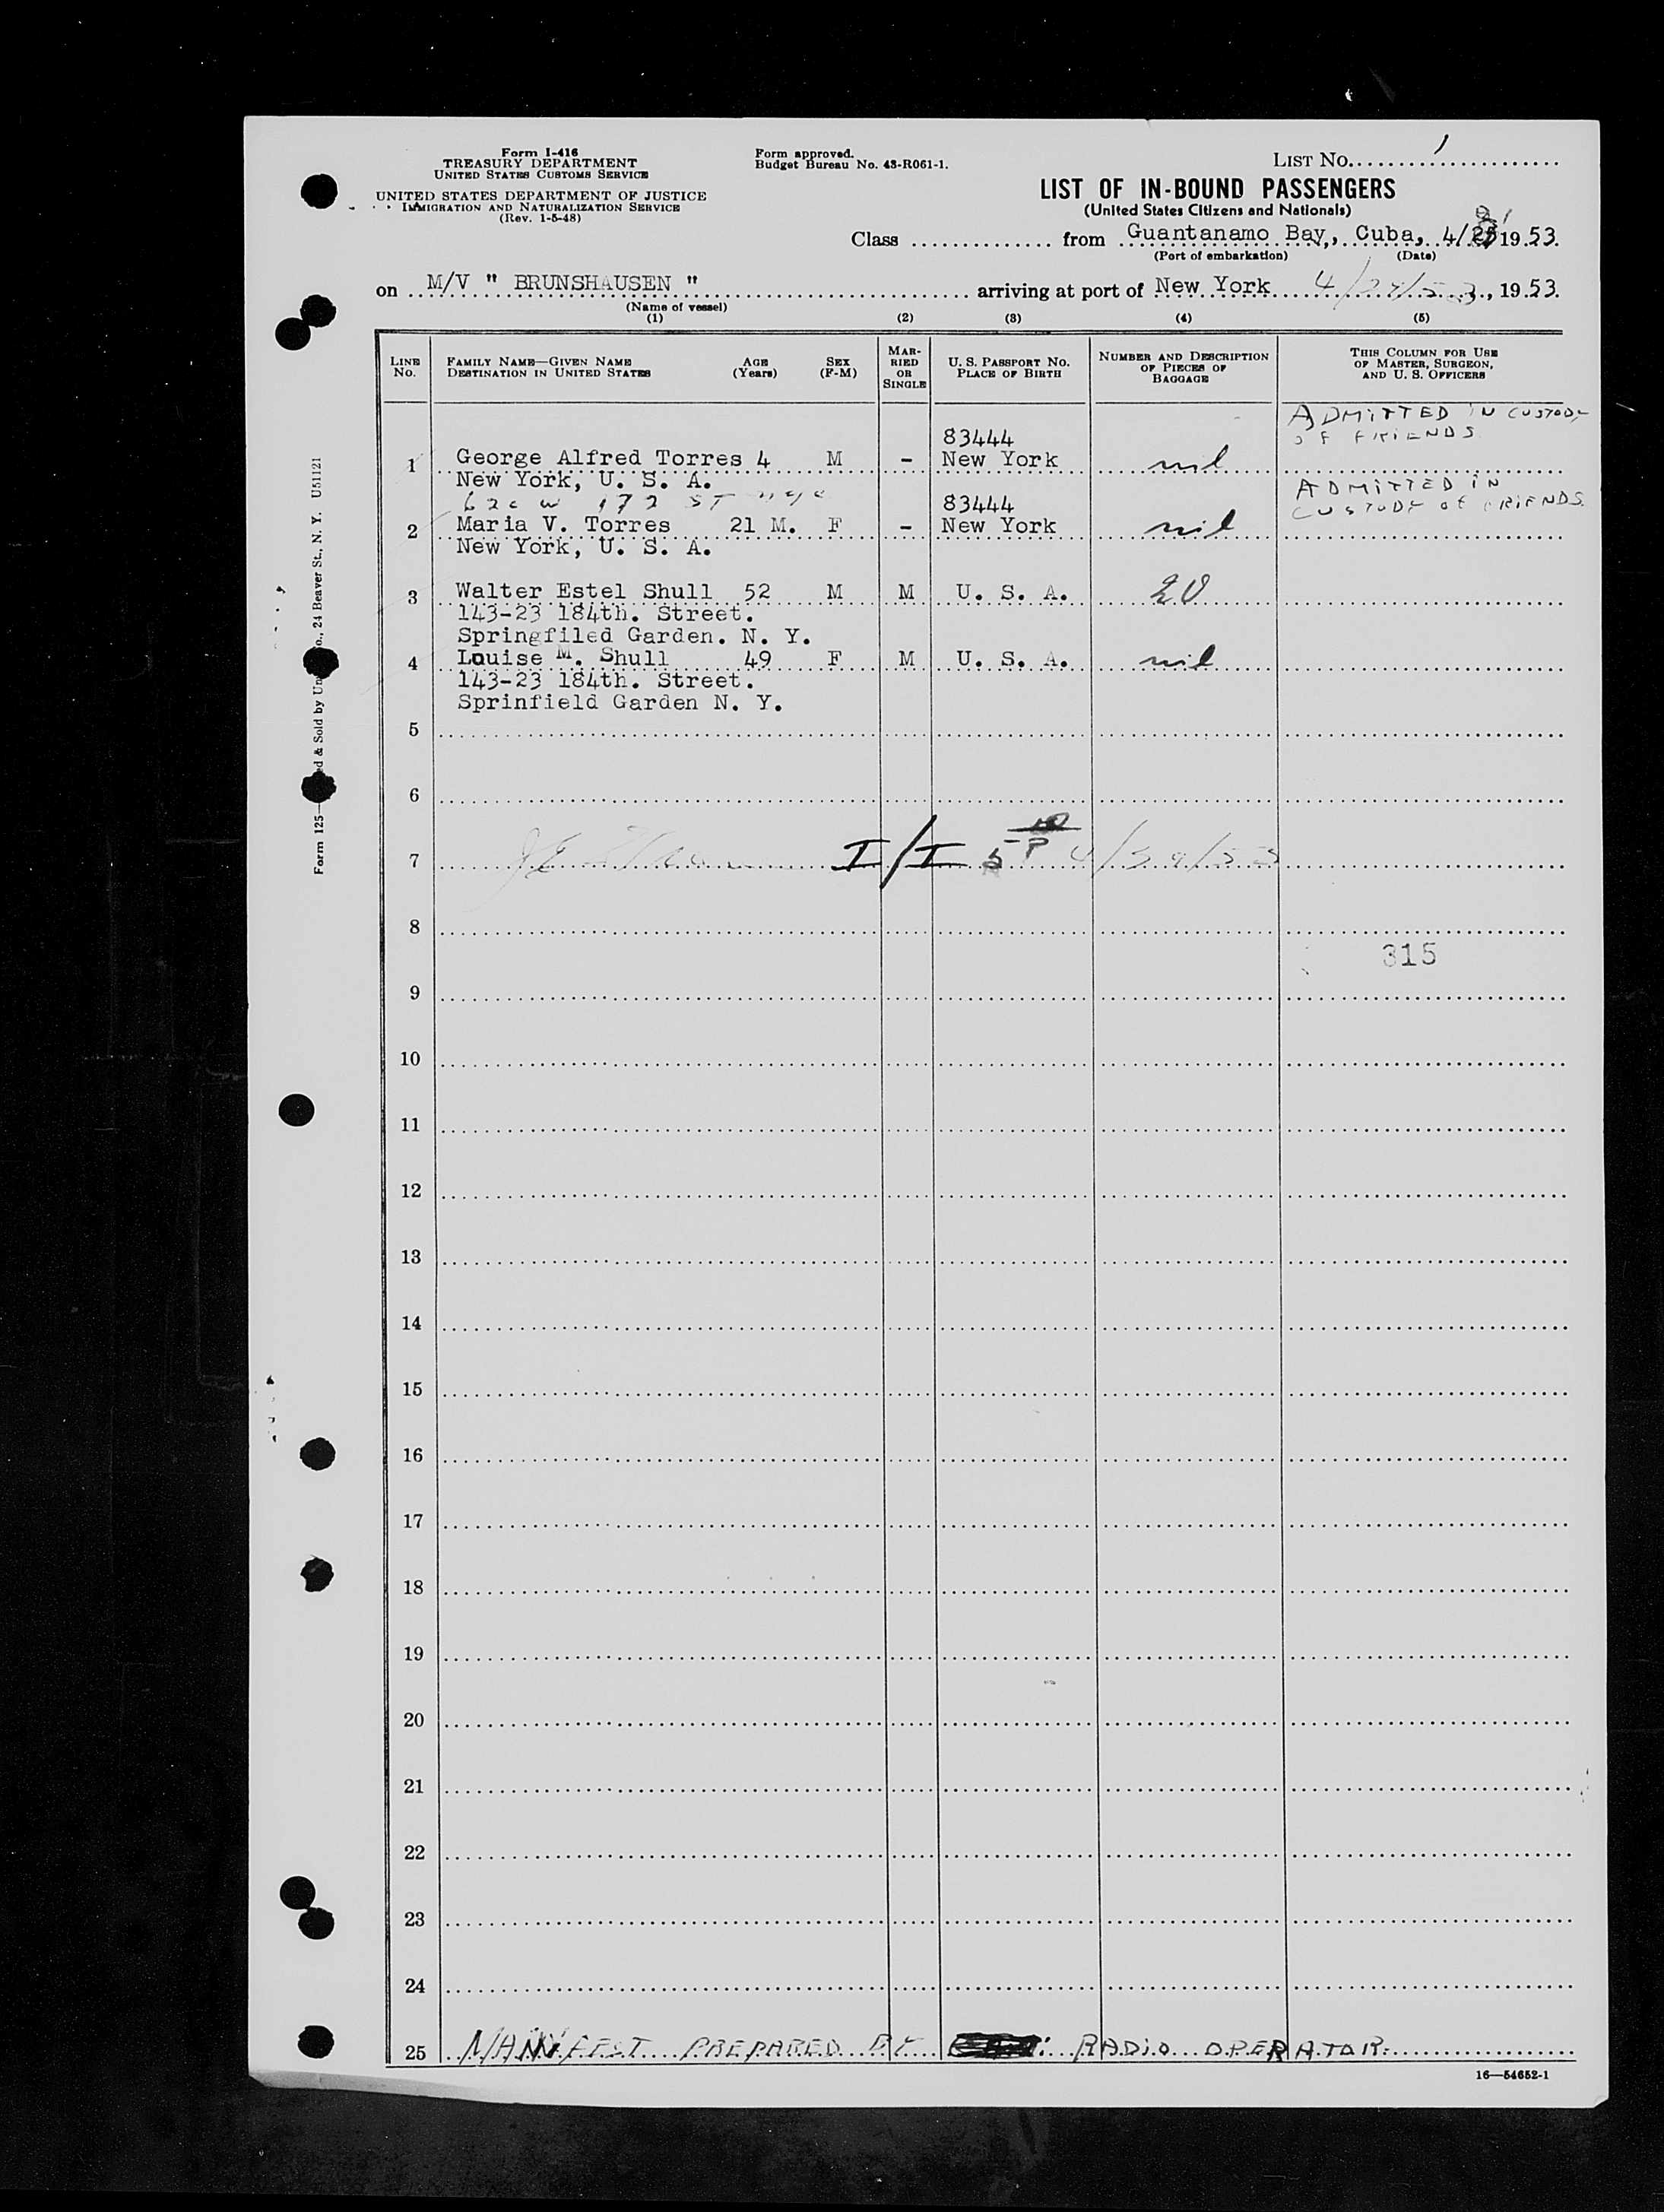 Form I-416
TREASURY DEPARTMENT
UNITED STATES CUSTOMS SERVICE
UNITED STATES DEPARTMENT OF JUSTICE
IMMIGRATION AND NATURALIZATION SERVICE
(Rev. 1-5-48)
Form approved.
Budget Bureau No. 43-R061-1.
LIST No. 1
LIST OF IN-BOUND PASSENGERS
(United States Citizens and Nationals)
Class from Guantanamo Bay, Cuba, 4/ 1953.
(Port of embarkation) (Date)
on M/V " BRUNSHAUSEN " arriving at port of New York 4/ , 1953.
(Name of vessel)
(1) (2) (3) (4) (5)
LINE No. FAMILY NAME—GIVEN NAME DESTINATION IN UNITED STATES AGE (Years) SEX (F-M) MARRIED OR SINGLE U. S. PASSPORT No. PLACE OF BIRTH NUMBER AND DESCRIPTION OF PIECES OF BAGGAGE THIS COLUMN FOR USE OF MASTER, SURGEON, AND U. S. OFFICERS
ADMITTED IN CUSTODY
83444 OF FRIENDS
1 George Alfred Torres 4 M - New York nil
New York, U. S. A. ADMITTED IN
W 172 ST 83444 CUSTODY OF FRIENDS.
2 Maria V. Torres 21 M. F - New York nil
New York, U. S. A.
3 Walter Estel Shull 52 M M U. S. A. 20
143-23 184th. Street.
Springfiled Garden. N. Y.
4 Louise M. Shull 49 F M U. S. A. nil
143-23 184th. Street.
Sprinfield Garden N. Y.
5
6
7 I/I 4/30/53
8
315
9
10
11
12
13
14
15
16
17
18
19
20
21
22
23
24
25 MANIFEST PREPARED BY : RADIO OPERATOR
16—54652-1
Form 125— ed & Sold by Un o., 24 Beaver St., N. Y. U51121